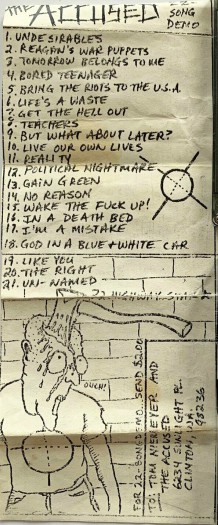 THE ACCUSED
22-
SONG
DEMO
1. UNDESIRABLES
2. REAGAN'S WAR PUPPETS
3. TOMORROW BELONGS TO ME
4. BORED TEENAGER
5. BRING THE RIOTS TO THE U.S.A.
6. LIFE'S A WASTE
7. GET THE HELL OUT
8. TEACHERS
9. BUT WHAT ABOUT LATER?
10. LIVE OUR OWN LIVES
11. REALITY
12. POLITICAL NIGHTMARE
13. GAIN GREEN
14. NO REASON
15. WAKE THE FUCK UP!
16. IN A DEATH BED
17. I'M A MISTAKE
18. GOD IN A BLUE + WHITE CAR
19. LIKE YOU
20. THE RIGHT
21. UN-NAMED
22. HIGHWAY
OUCH!
FOR 22-SONG DEMO, SEND $2.00
TO: TOM NIEMEYER AND
THE ACCUSED
6234 SUNLIGHT PL.
CLINTON, WA.
98236